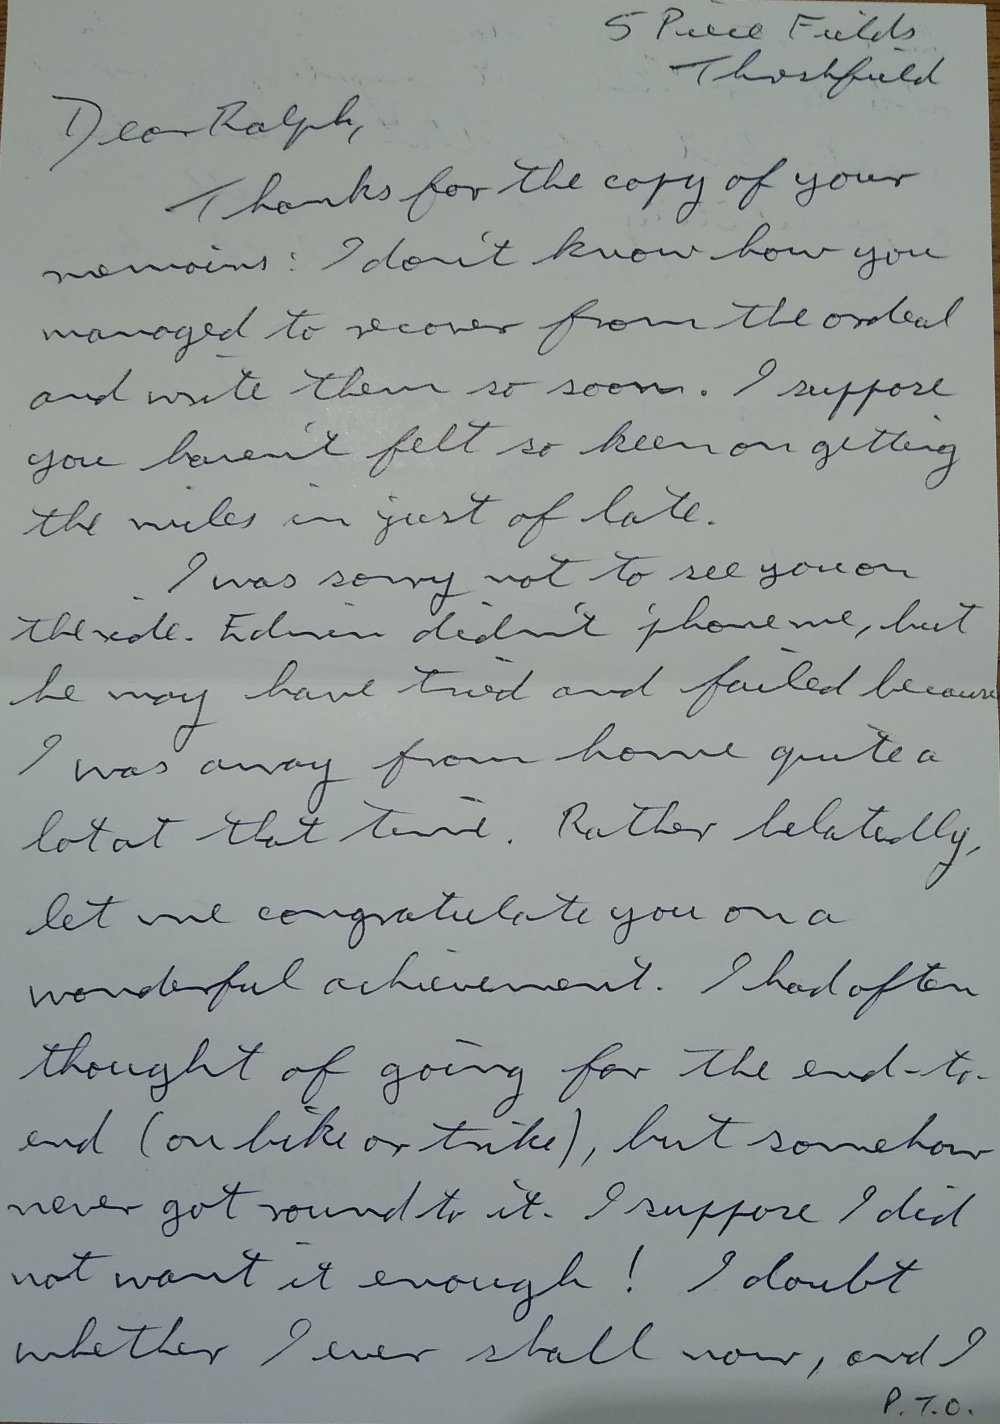 5 Piece Fields
Threshfield
Dear Ralph,
Thanks for the copy of your
memoirs: I don't know how you
managed to recover from the ordeal
and write them so soon. I suppose
you haven't felt so keen on getting
the miles in just of late.
I was sorry not to see you on
the ride. Edwin didn't 'phone me, but
he may have tried and failed because
I was away from home quite a
lot at that time. Rather belatedly,
let me congratulate you on a
wonderful achievement. I had often
thought of going for the end-to-
end (on bike or trike), but somehow
never got round to it. I suppose I did
not want it enough! I doubt
whether I ever shall now, and I
P.T.O.